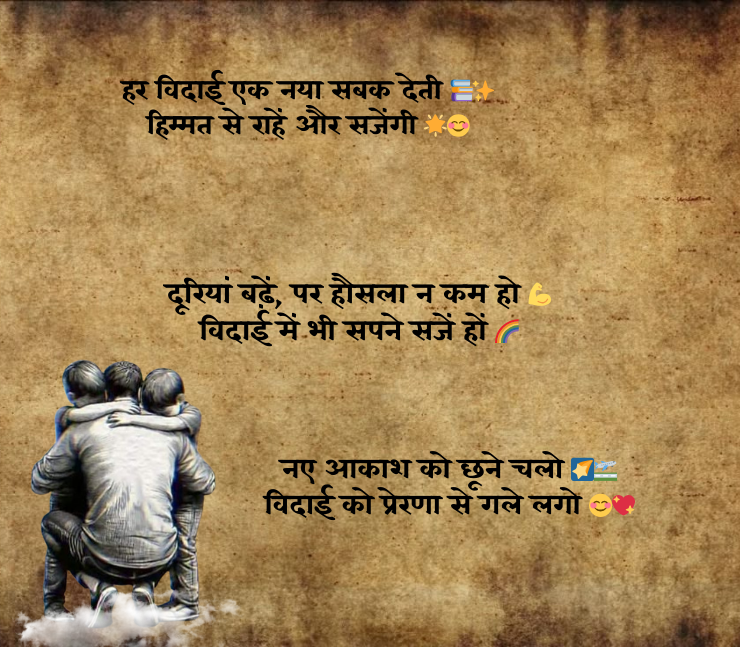 हर विदाई एक नया सबक देती 📚✨
हिम्मत से राहें और सजेंगी 🌟😊
दूरियां बढ़ें, पर हौसला न कम हो 💪
विदाई में भी सपने सजें हों 🌈
नए आकाश को छूने चलो 🌠🛫
विदाई को प्रेरणा से गले लगो 😊💖